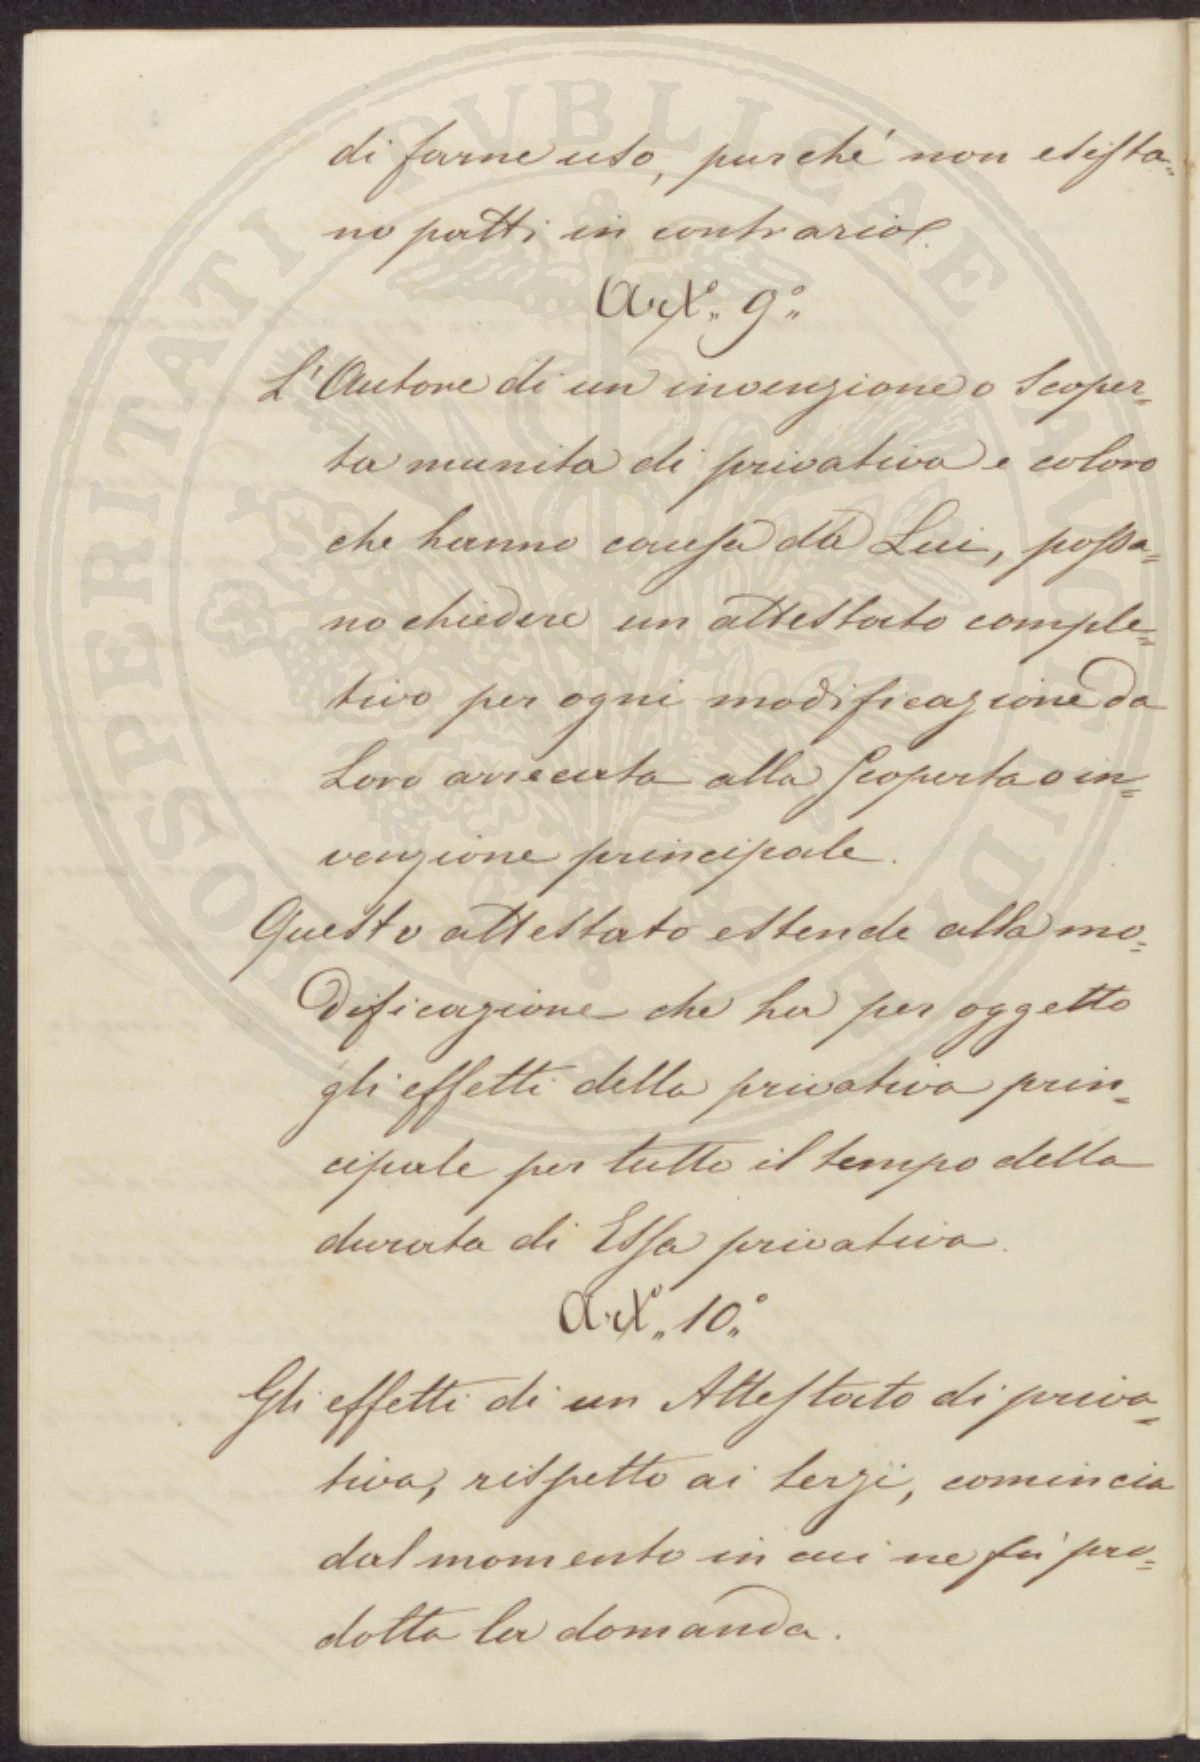 di farne uso, purché non esista„
no patti in contrario.
Art.° 9.°
L'Autore di un invenzione o Scoper„
ta munita di privativa e coloro
che hanno causa da Lui, possa=
no chiedere un attestato comple=
tivo per ogni modificazione da
Loro arrecata alla Scoperta o in=
venzione principale.
Questo attestato estende alla mo=
dificazione che ha per oggetto
gli effetti della privativa prin=
cipale per tutto il tempo della
durata di Essa privativa.
Art.° 10.°
Gli effetti di un Attestato di priva=
tiva, rispetto ai terzi, comincia
dal momento in cui ne fu pro=
dotta la domanda.
PROSPERITATI PVBLICAE AVGENDAE